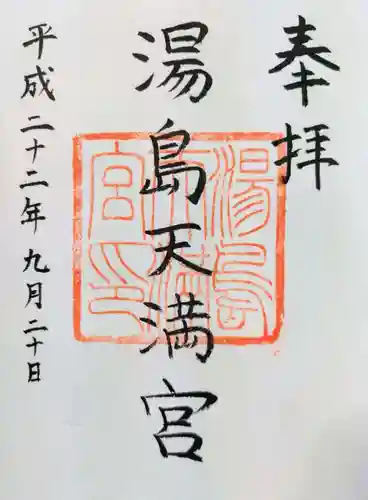 奉拝
湯島天満宮
湯島天満宮印
平成二十二年九月二十日